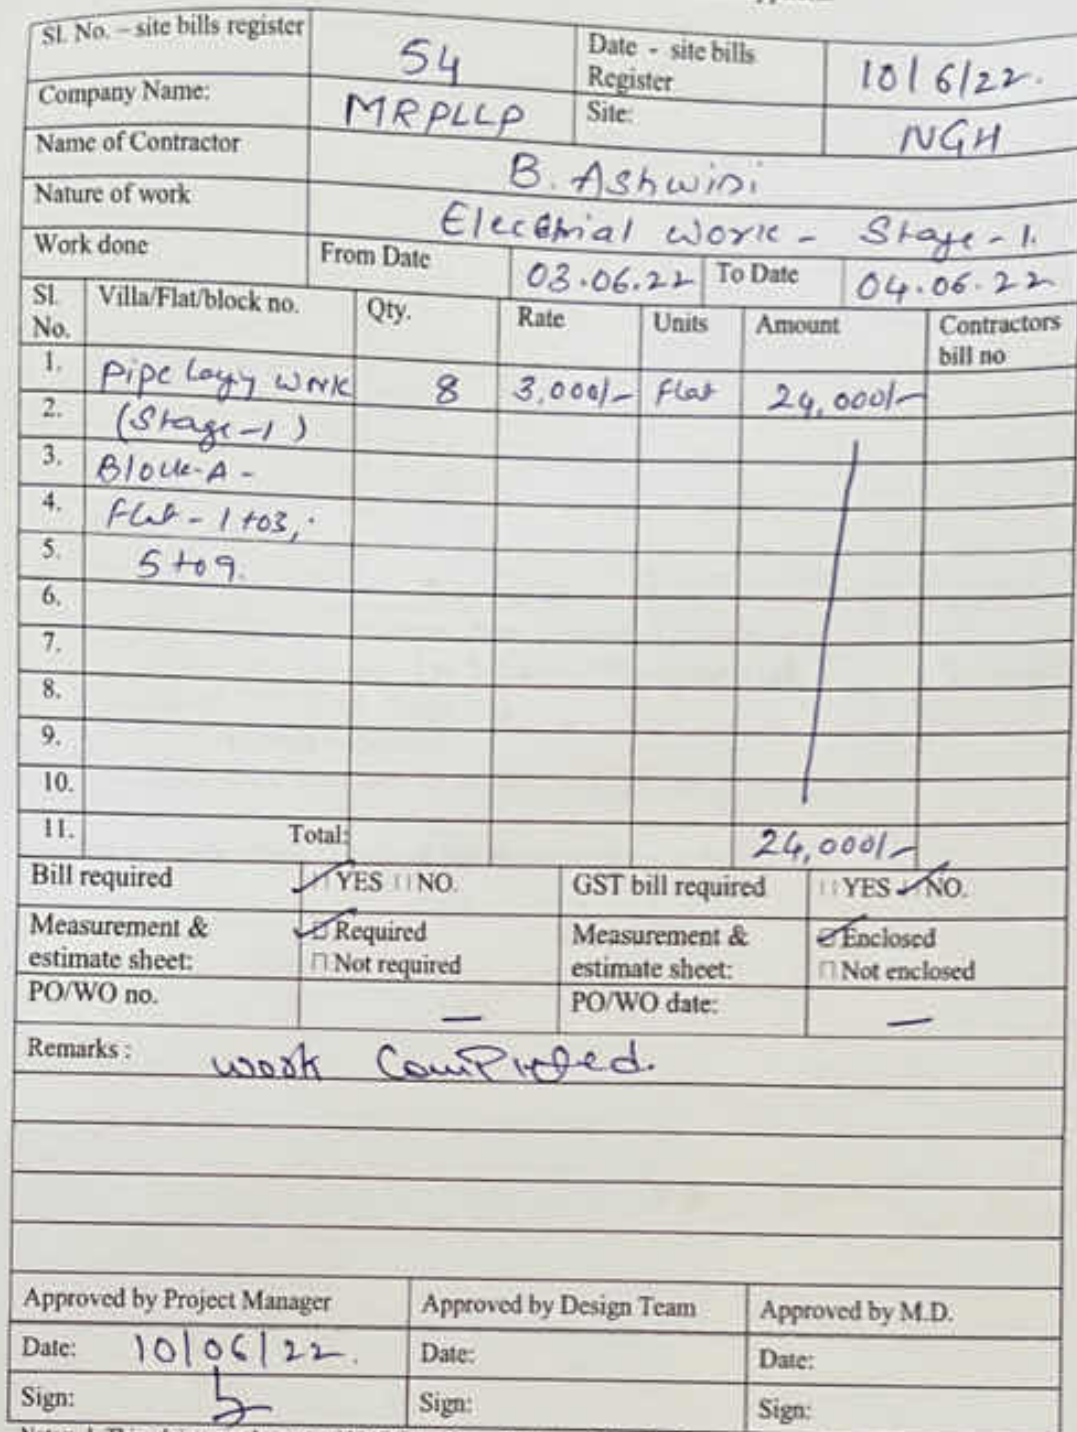 Sl. No. – site bills register 54 Date - site bills Register 10/6/22.
Company Name: MRPLLP Site: NGH
Name of Contractor B. Ashwini
Nature of work Electrial work - Stage-1.
Work done From Date 03.06.22 To Date 04.06.22
Sl. No. Villa/Flat/block no. Qty. Rate Units Amount Contractors bill no
1. Pipe work 8 3,000/- Flat 24,000/-
2. (Stage-1)
3. Block-A -
4. Flat - 1 to 3,
5. 5 to 9.
6.
7.
8.
9.
10.
11. Total: 24,000/-
Bill required YES NO. GST bill required YES NO.
Measurement & estimate sheet: Required Measurement & estimate sheet: Enclosed
Not required Not enclosed
PO/WO no. — PO/WO date: —
Remarks : work
Approved by Project Manager Approved by Design Team Approved by M.D.
Date: 10/06/22. Date: Date:
Sign: Sign: Sign: